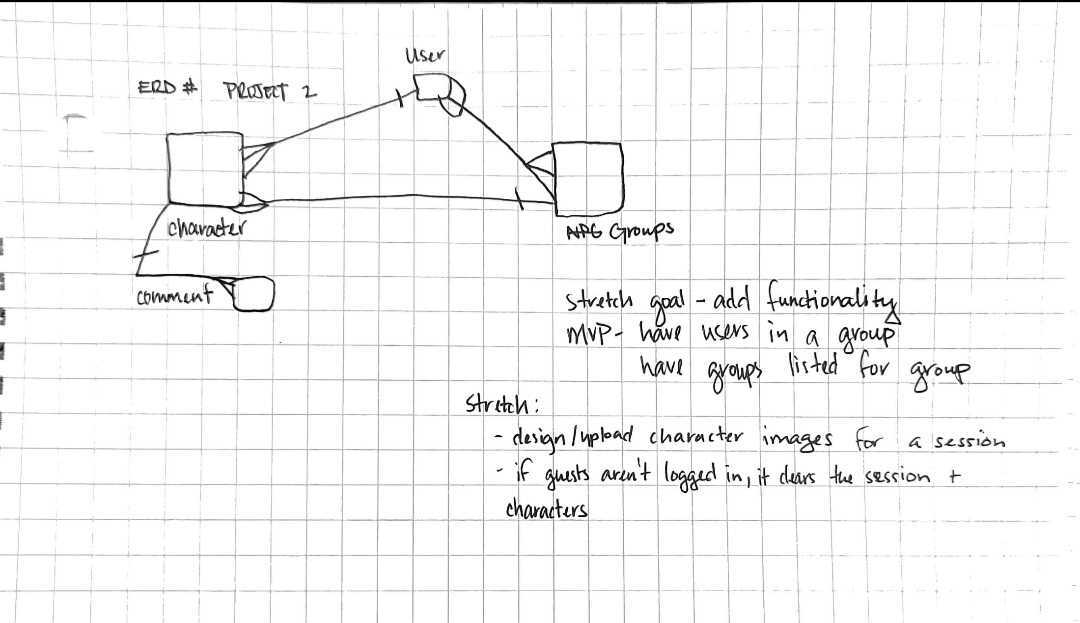 User
ERD # PROJECT 2
character
Groups
comment
stretch goal - add functionality
MVP - have users in a group
have groups listed for group
Stretch:
- design/upload character images for a session
- if guests aren't logged in, it clears the session +
characters